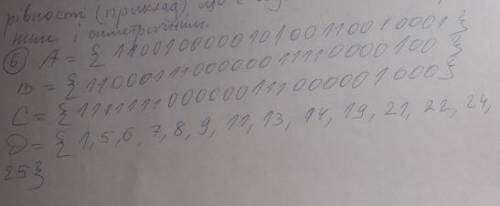 рівності (приклад) що є
і симетричним.
6 A = { 1100100000101001100100001 }
B = { 1100011100000011110000100 }
C = { 1111111000000111000001000 }
D = { 1, 5, 6, 7, 8, 9, 11, 13, 14, 19, 21, 22, 24,
25 }